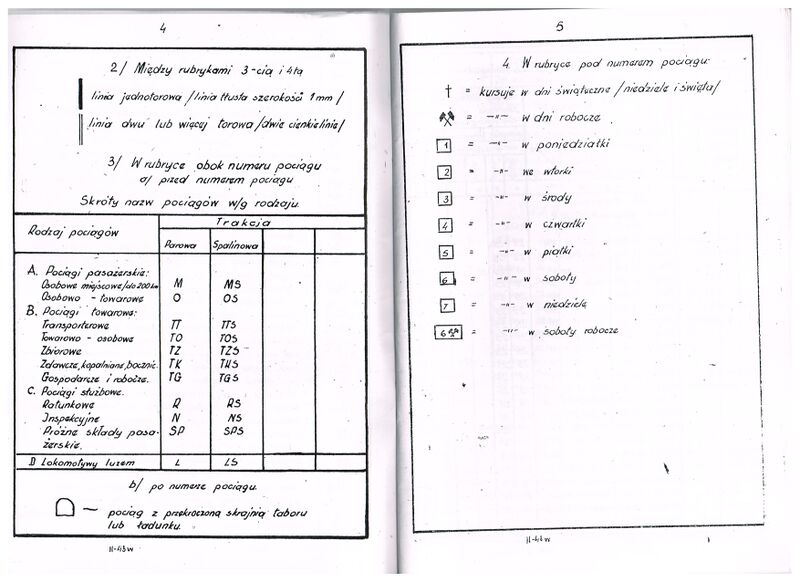 4
2/ Między rubrykami 3-cią i 4tą
linia jednotorowa /linia tłusta szerokości 1mm/
linia dwu lub więcej torowa /dwie cienkie linie/
3/ W rubryce obok numeru pociągu
a/ przed numerem pociągu
Skróty nazw pociągów w/g rodzaju.
Rodzaj pociągów
Trakcja
Parowa Spalinowa
A. Pociągi pasażerskie:
Osobowe miejscowe/do 200km M MS
Osobowo - towarowe O OS
B. Pociągi towarowe:
Transporterowe TT TTS
Towarowo - osobowe TO TOS
Zbiorowe TZ TZS
Zdawcze, kopalniane, bocznic. TK TKS
Gospodarcze i robocze. TG TGS
C. Pociągi służbowe.
Ratunkowe R RS
Inspekcyjne N NS
Próżne składy pasa- SP SPS
żerskie.
D Lokomotywy luzem L LS
b/ po numerze pociągu.
— pociąg z przekroczoną skrajnią taboru
lub ładunku.
H-43w
5
4. W rubryce pod numerem pociągu:
† = kursuje w dni świąteczne /niedziele i święta/
⚒ = —"— w dni robocze
1 = —"— w poniedziałki
2 = —"— we wtorki
3 = —"— w środy
4 = —"— w czwartki
5 = —"— w piątki
6 = —"— w soboty
7 = —"— w niedziele
6 = —"— w soboty robocze
H-43w